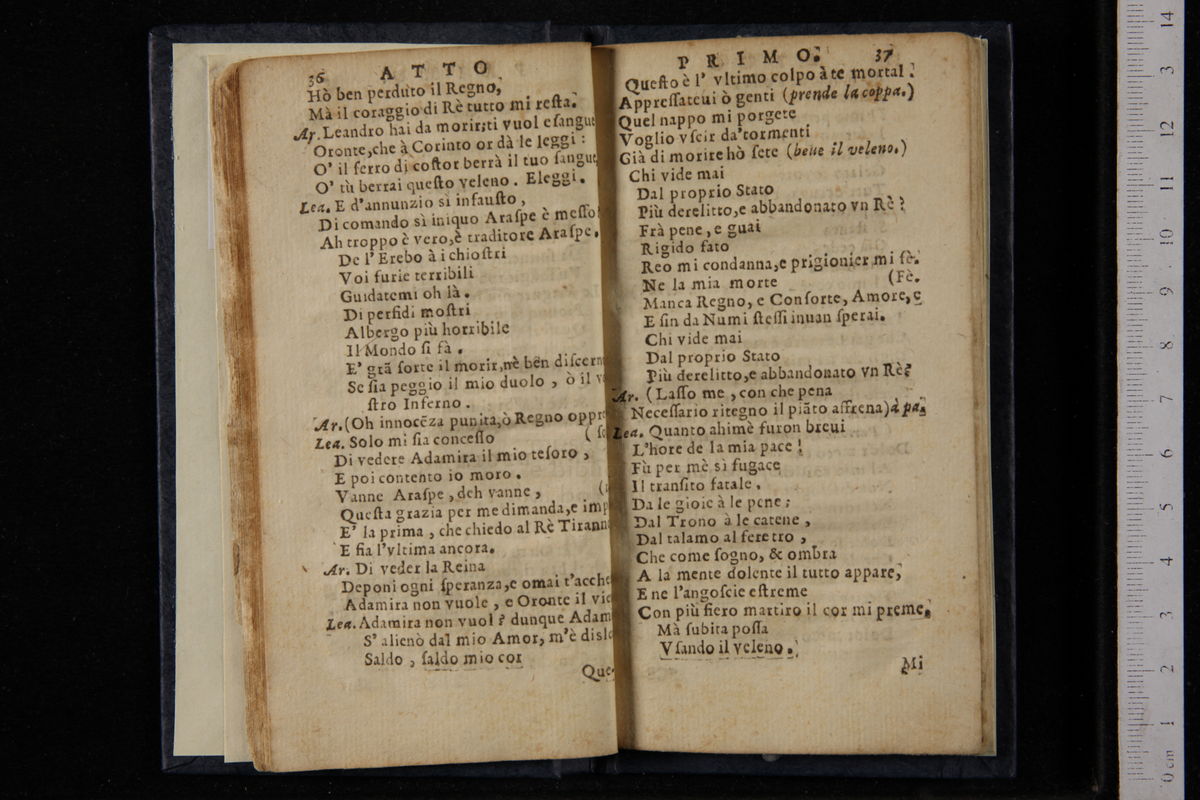 36 ATTO
Hò ben perduto il Regno,
Mà il coraggio di Rè tutto mi resta.
Ar. Leandro hai da morir; ti vuol esangue
Oronte, che à Corinto or dà le leggi:
O' il ferro di costor berrà il tuo sangue,
O' tù berrai questo veleno. Eleggi.
Lea. E d'annunzio si infausto,
Di comando sì iniquo Araspe è messo
Ah troppo è vero, è traditore Araspe.
De l'Erebo à i chiostri
Voi furie terribili
Guidatemi oh là.
Di perfidi mostri
Albergo più horribile
Il Mondo si fà.
E' grã sorte il morir, nè ben discern
Se sia peggio il mio duolo, ò il v
stro Inferno.
Ar. (Oh innocẽza punita, ò Regno oppre
Lea. Solo mi sia concesso (so
Di vedere Adamira il mio tesoro,
E poi contento io moro.
Vanne Araspe, deh vanne, (
Questa grazia per me dimanda, e imp
E' la prima, che chiedo al Rè Tirann
E sia l'vltima ancora.
Ar. Di veder la Reina
Deponi ogni speranza, e omai t'acche
Adamira non vuole, e Oronte il vie
Lea. Adamira non vuol? dunque Adam
S' alienò dal mio Amor, m'è disle
Saldo, saldo mio cor
Que-
PRIMO. 37
Questo è l' vltimo colpo à te mortal.
Appressateui ò genti (prende la coppa.)
Quel nappo mi porgete
Voglio vscir da'tormenti
Già di morire hò sete (beue il veleno.)
Chi vide mai
Dal proprio Stato
Più derelitto, e abbandonato vn Rè?
Frà pene, e guai
Rigido fato
Reo mi condanna, e prigionier mi fè.
Ne la mia morte (Fè.
Manca Regno, e Consorte, Amore, e
E sin da Numi stessi inuan sperai.
Chi vide mai
Dal proprio Stato
Più derelitto, e abbandonato vn Rè?
Ar. (Lasso me, con che pena
Necessario ritegno il piãto affrena) à pa.
Lea. Quanto ahimè furon breui
L'hore de la mia pace!
Fù per mè sì fugace
Il transito fatale,
Da le gioie à le pene;
Dal Trono à le catene,
Dal talamo al feretro,
Che come sogno, & ombra
A la mente dolente il tutto appare,
E ne l'angoscie estreme
Con più fiero martiro il cor mi preme.
Mà subita possa
Vsando il veleno.
Mi
0 cm 1 2 3 4 5 6 7 8 9 10 11 12 13 14